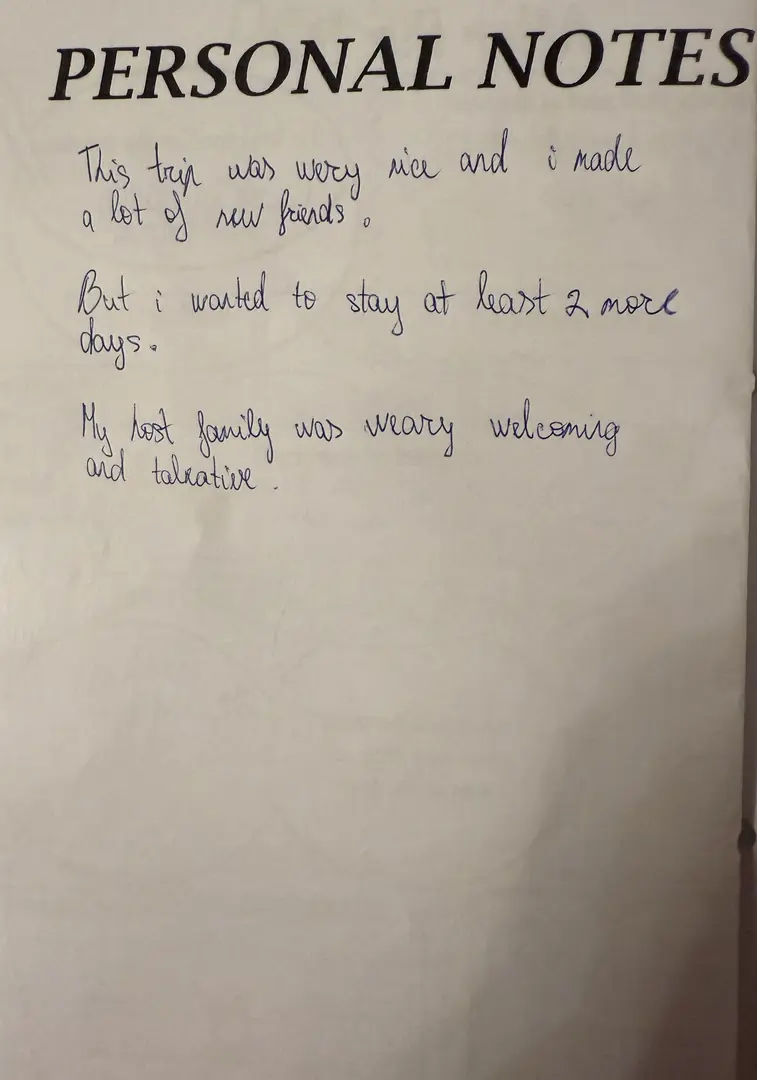 PERSONAL NOTES
This trip was wery nice and i made
a lot of new friends.
But i wanted to stay at least 2 more
days.
My host family was weary welcoming
and talkative.